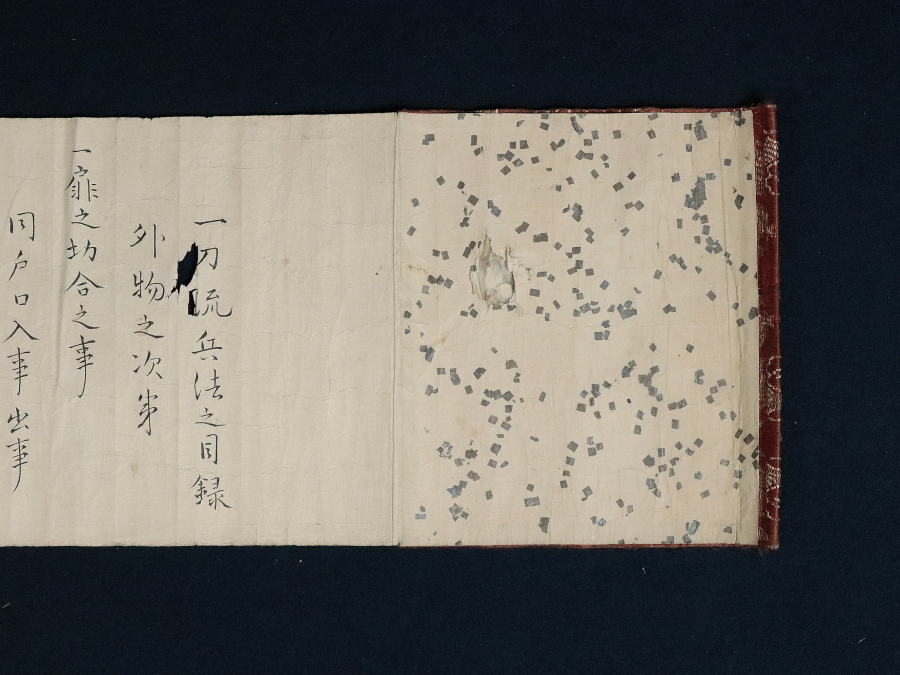 一刀流兵法之目録
外物之次第
一扉之切合之事
同戸口入事出事